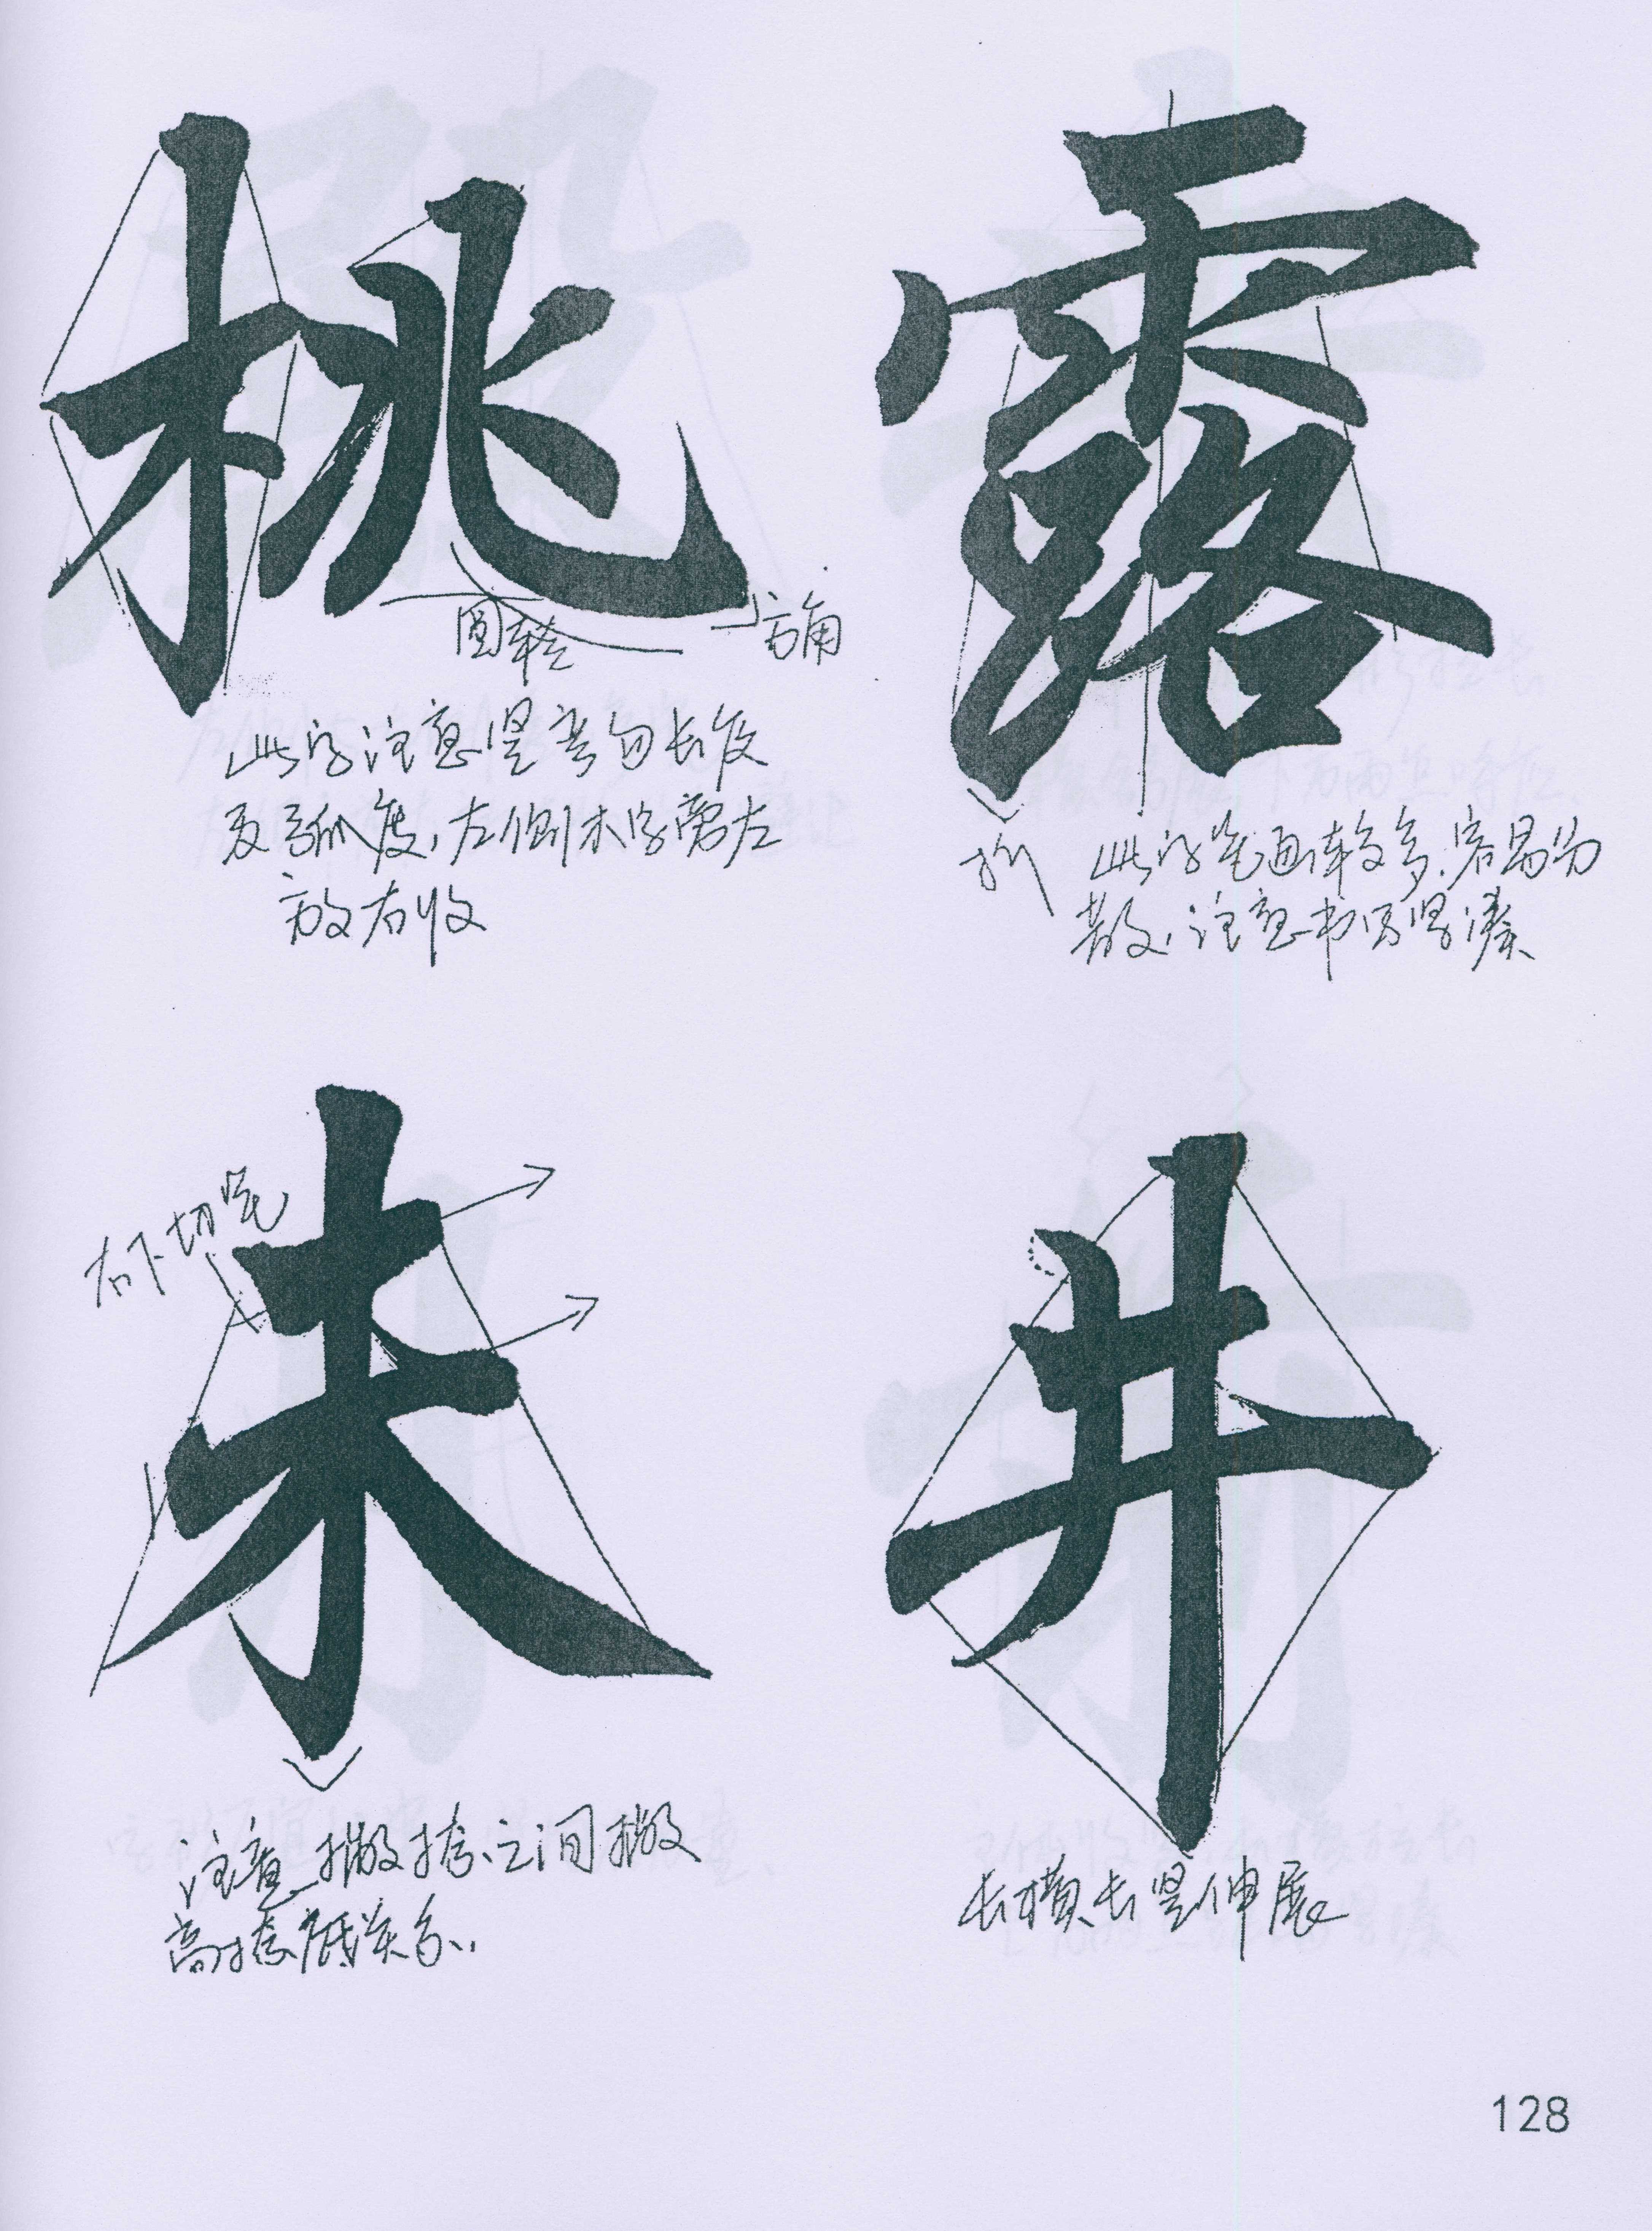 桃
圆转
方角
此字注意竖弯勾长度
及弧度,左侧木字旁左
放右收
露
折
此字笔画较多,容易分
散,注意书写紧凑
未
右下切笔
注意撇捺之间撇
高捺底关系.
井
长横长竖伸展
128